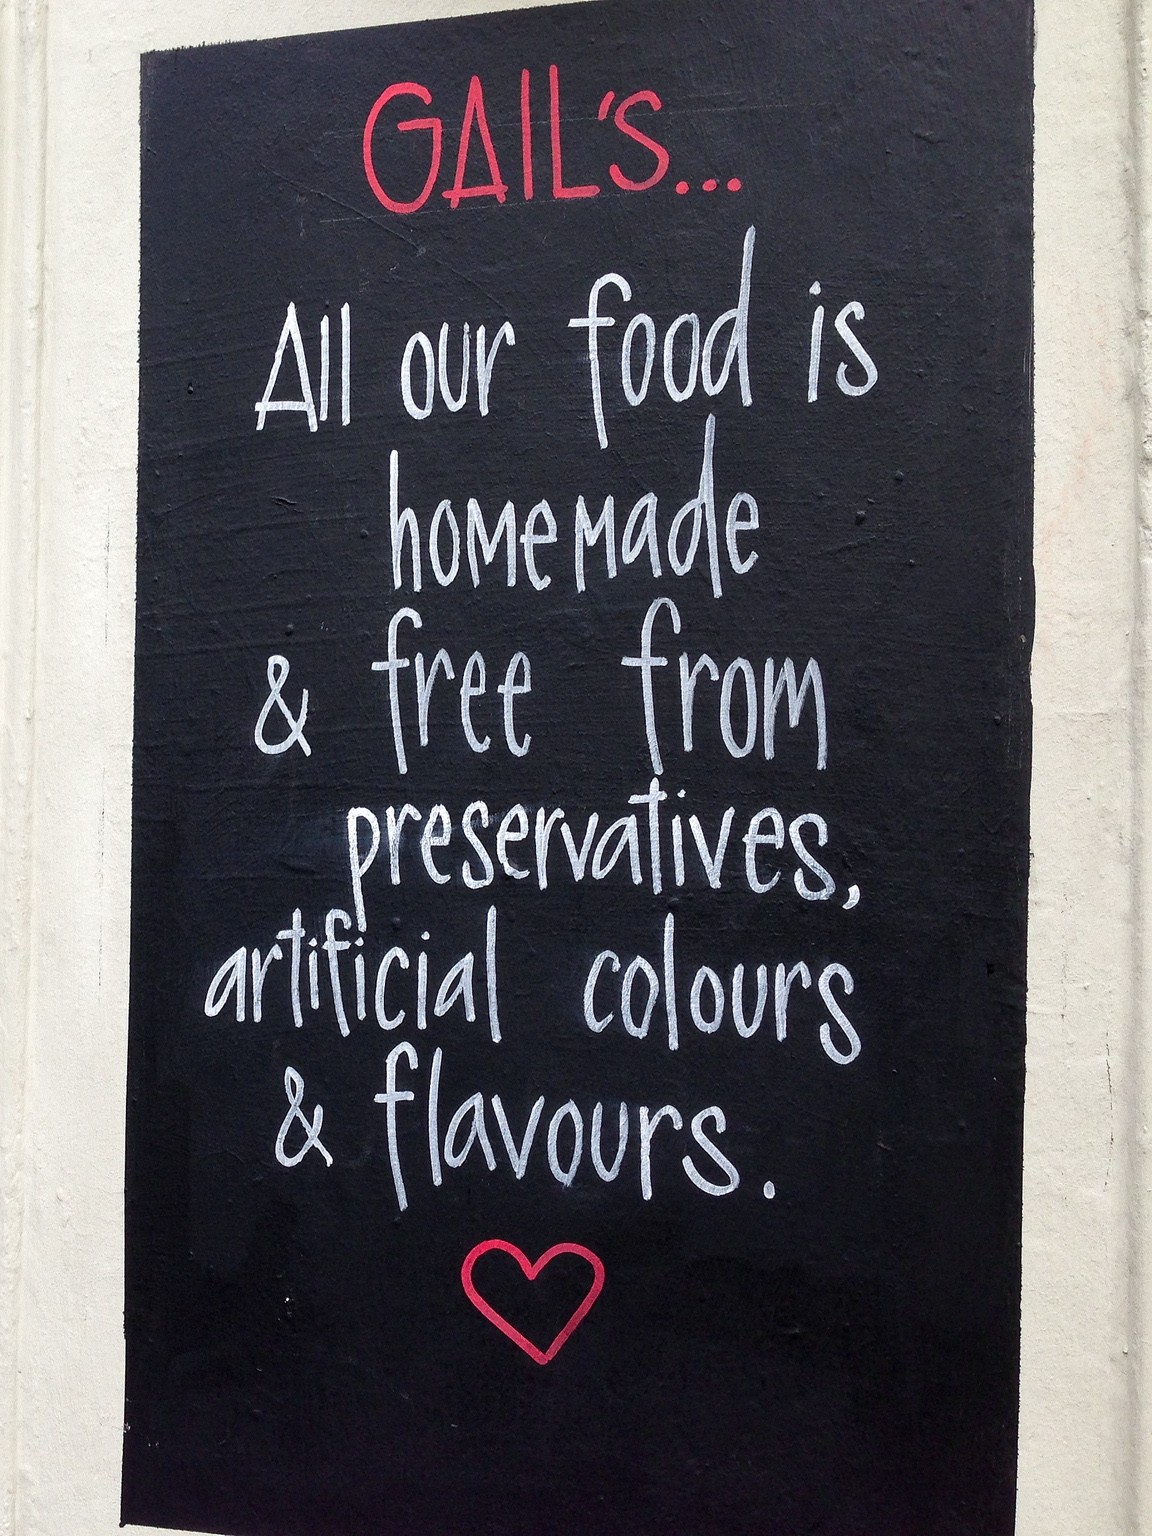 GAIL'S...
All our food is
homemade
& free from
preservatives,
artificial colours
& flavours.